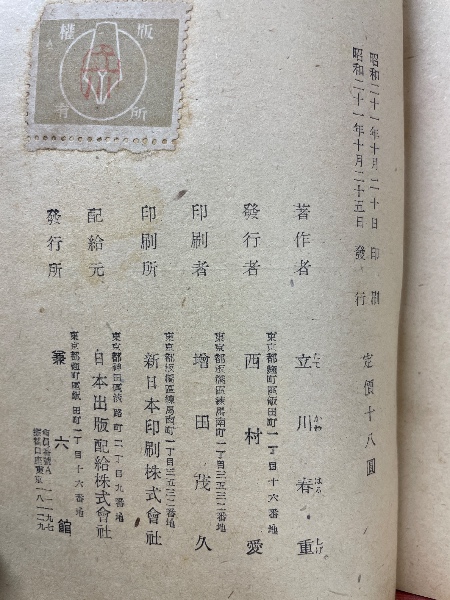 昭和二十一年十月二十日 印刷
昭和二十一年十月二十五日 發行
定價十八圓
著作者 立川春重
たち かわ はる しげ
發行者 東京都麴町區飯田町一丁目十六番地
西村愛
印刷者 東京都板橋區練馬南町一丁目三五三二番地
增田茂久
印刷所 東京都板橋區練馬南町一丁目三五三二番地
新日本印刷株式會社
配給元 東京都神田區淡路町二丁目九番地
日本出版配給株式會社
發行所 東京都麴町區飯田町一丁目十六番地
六館
版權所有